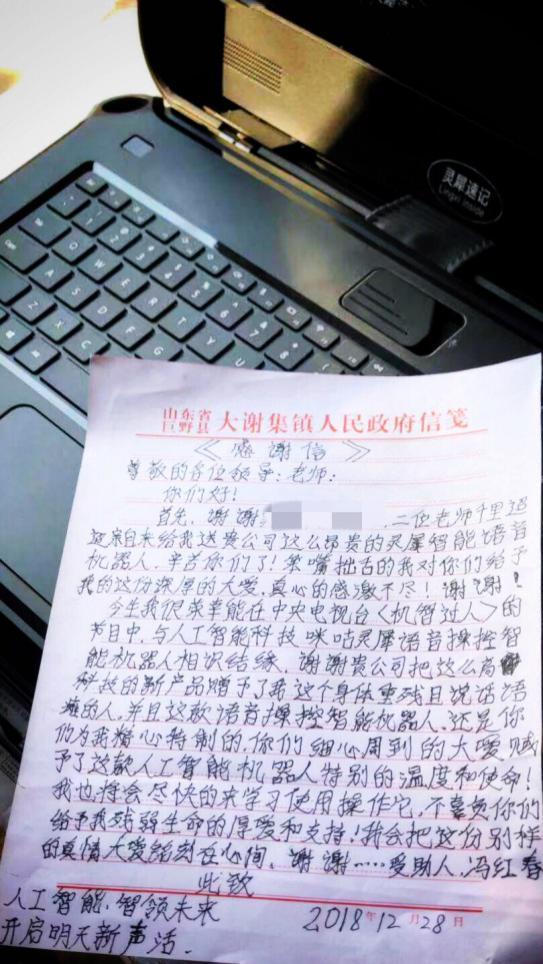 灵犀速记
山东省
巨野县 大谢集镇人民政府信笺
《感谢信》
尊敬的各位领导:老师:
你们好!
首先,谢谢 ,二位老师千里迢
迢亲自来给我送贵公司这么昂贵的灵犀智能语音
机器人,辛苦你们了!笨嘴拙舌的我对你们给予
我的这份深厚的大爱,真心的感激不尽!谢谢!
今生我很荣幸能在中央电视台《机智过人》的
节目中,与人工智能科技咪咕灵犀语音操控智
能机器人相识结缘、谢谢贵公司把这么高
科技的新产品赠予了我这个身体重残且说话语
难的人,并且这款语音操控智能机器人、还是你
们为我精心特制的,你们细心周到的大爱赋
予了这款人工智能机器人特别的温度和使命!
我也将会尽快的来学习使用操作它,不辜负你们
给予我残弱生命的厚爱和支持!我会把这份别样
的真情大爱铭刻在心间、谢谢……受助人,冯红春
此致
人工智能,智领未来 2018年12月28日
开启明天新声活.